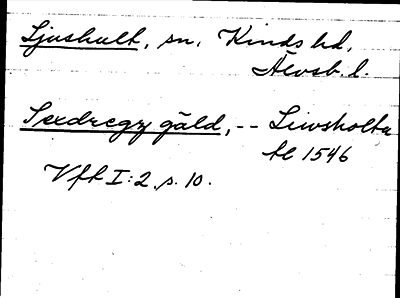 Ljushult, sn, Kinds hd,
Älvsb. l.
Sexdregz gäld, -- Liwsholta
tl 1546
Vfl I:2 s. 10.